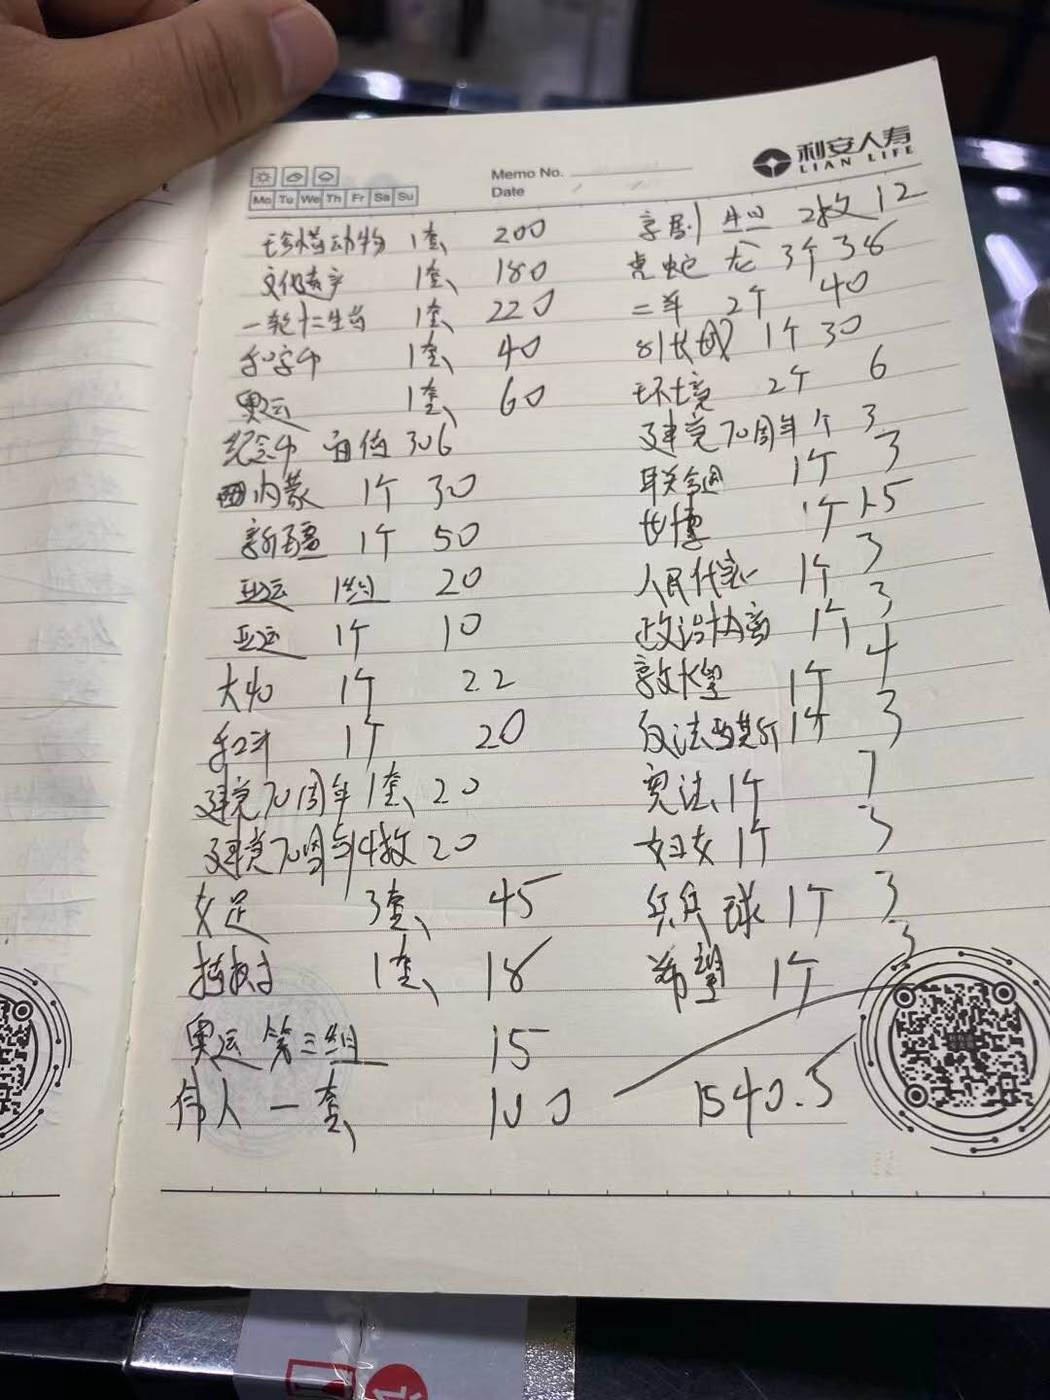 利安人寿
LIAN LIFE
Memo No.
Date
Mo Tu We Th Fr Sa Su
珍惜动物 1套 200
文化遗产 1套 180
一轮十二生肖 1套 220
和字币 1套 40
奥运 1套 60
纪念币 面值 306
内蒙 1个 30
新疆 1个 50
亚运 1组 20
亚运 1个 10
大 1个 22
和 1个 20
建党70周年 1套 20
建党70周年 4枚 20
女足 3套 45
1套 18
奥运 第三组 15
伟人 一套 100
京剧 2枚 12
虎蛇 龙 3个 36
二羊 2个 40
81长城 1个 30
环境 2个 6
建党70周年 个 3
联合国 1个 3
世博 1个 1.5
人民代表 1个 3
政治协商 1个 3
敦煌 1个 4
反法西斯 1个 3
宪法 1个 7
妇女 1个 3
乒乓球 1个 3
希望 1个 3
1540.5